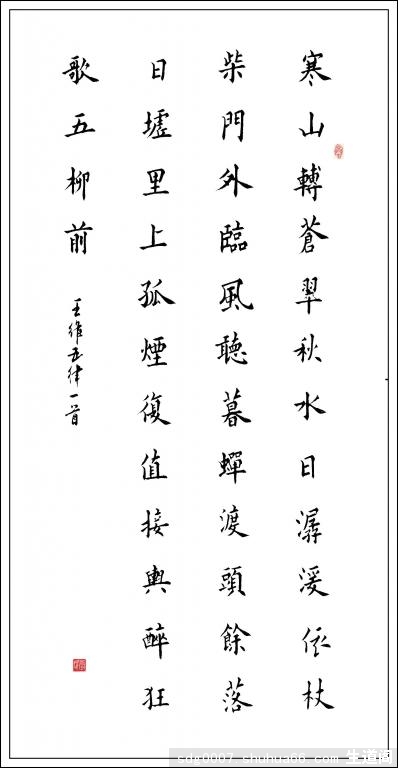 寒山轉蒼翠秋水日潺湲依杖
柴門外臨風聽暮蟬渡頭餘落
日墟里上孤煙復值接輿醉狂
歌五柳前
王維五律一首
shuhua66.com